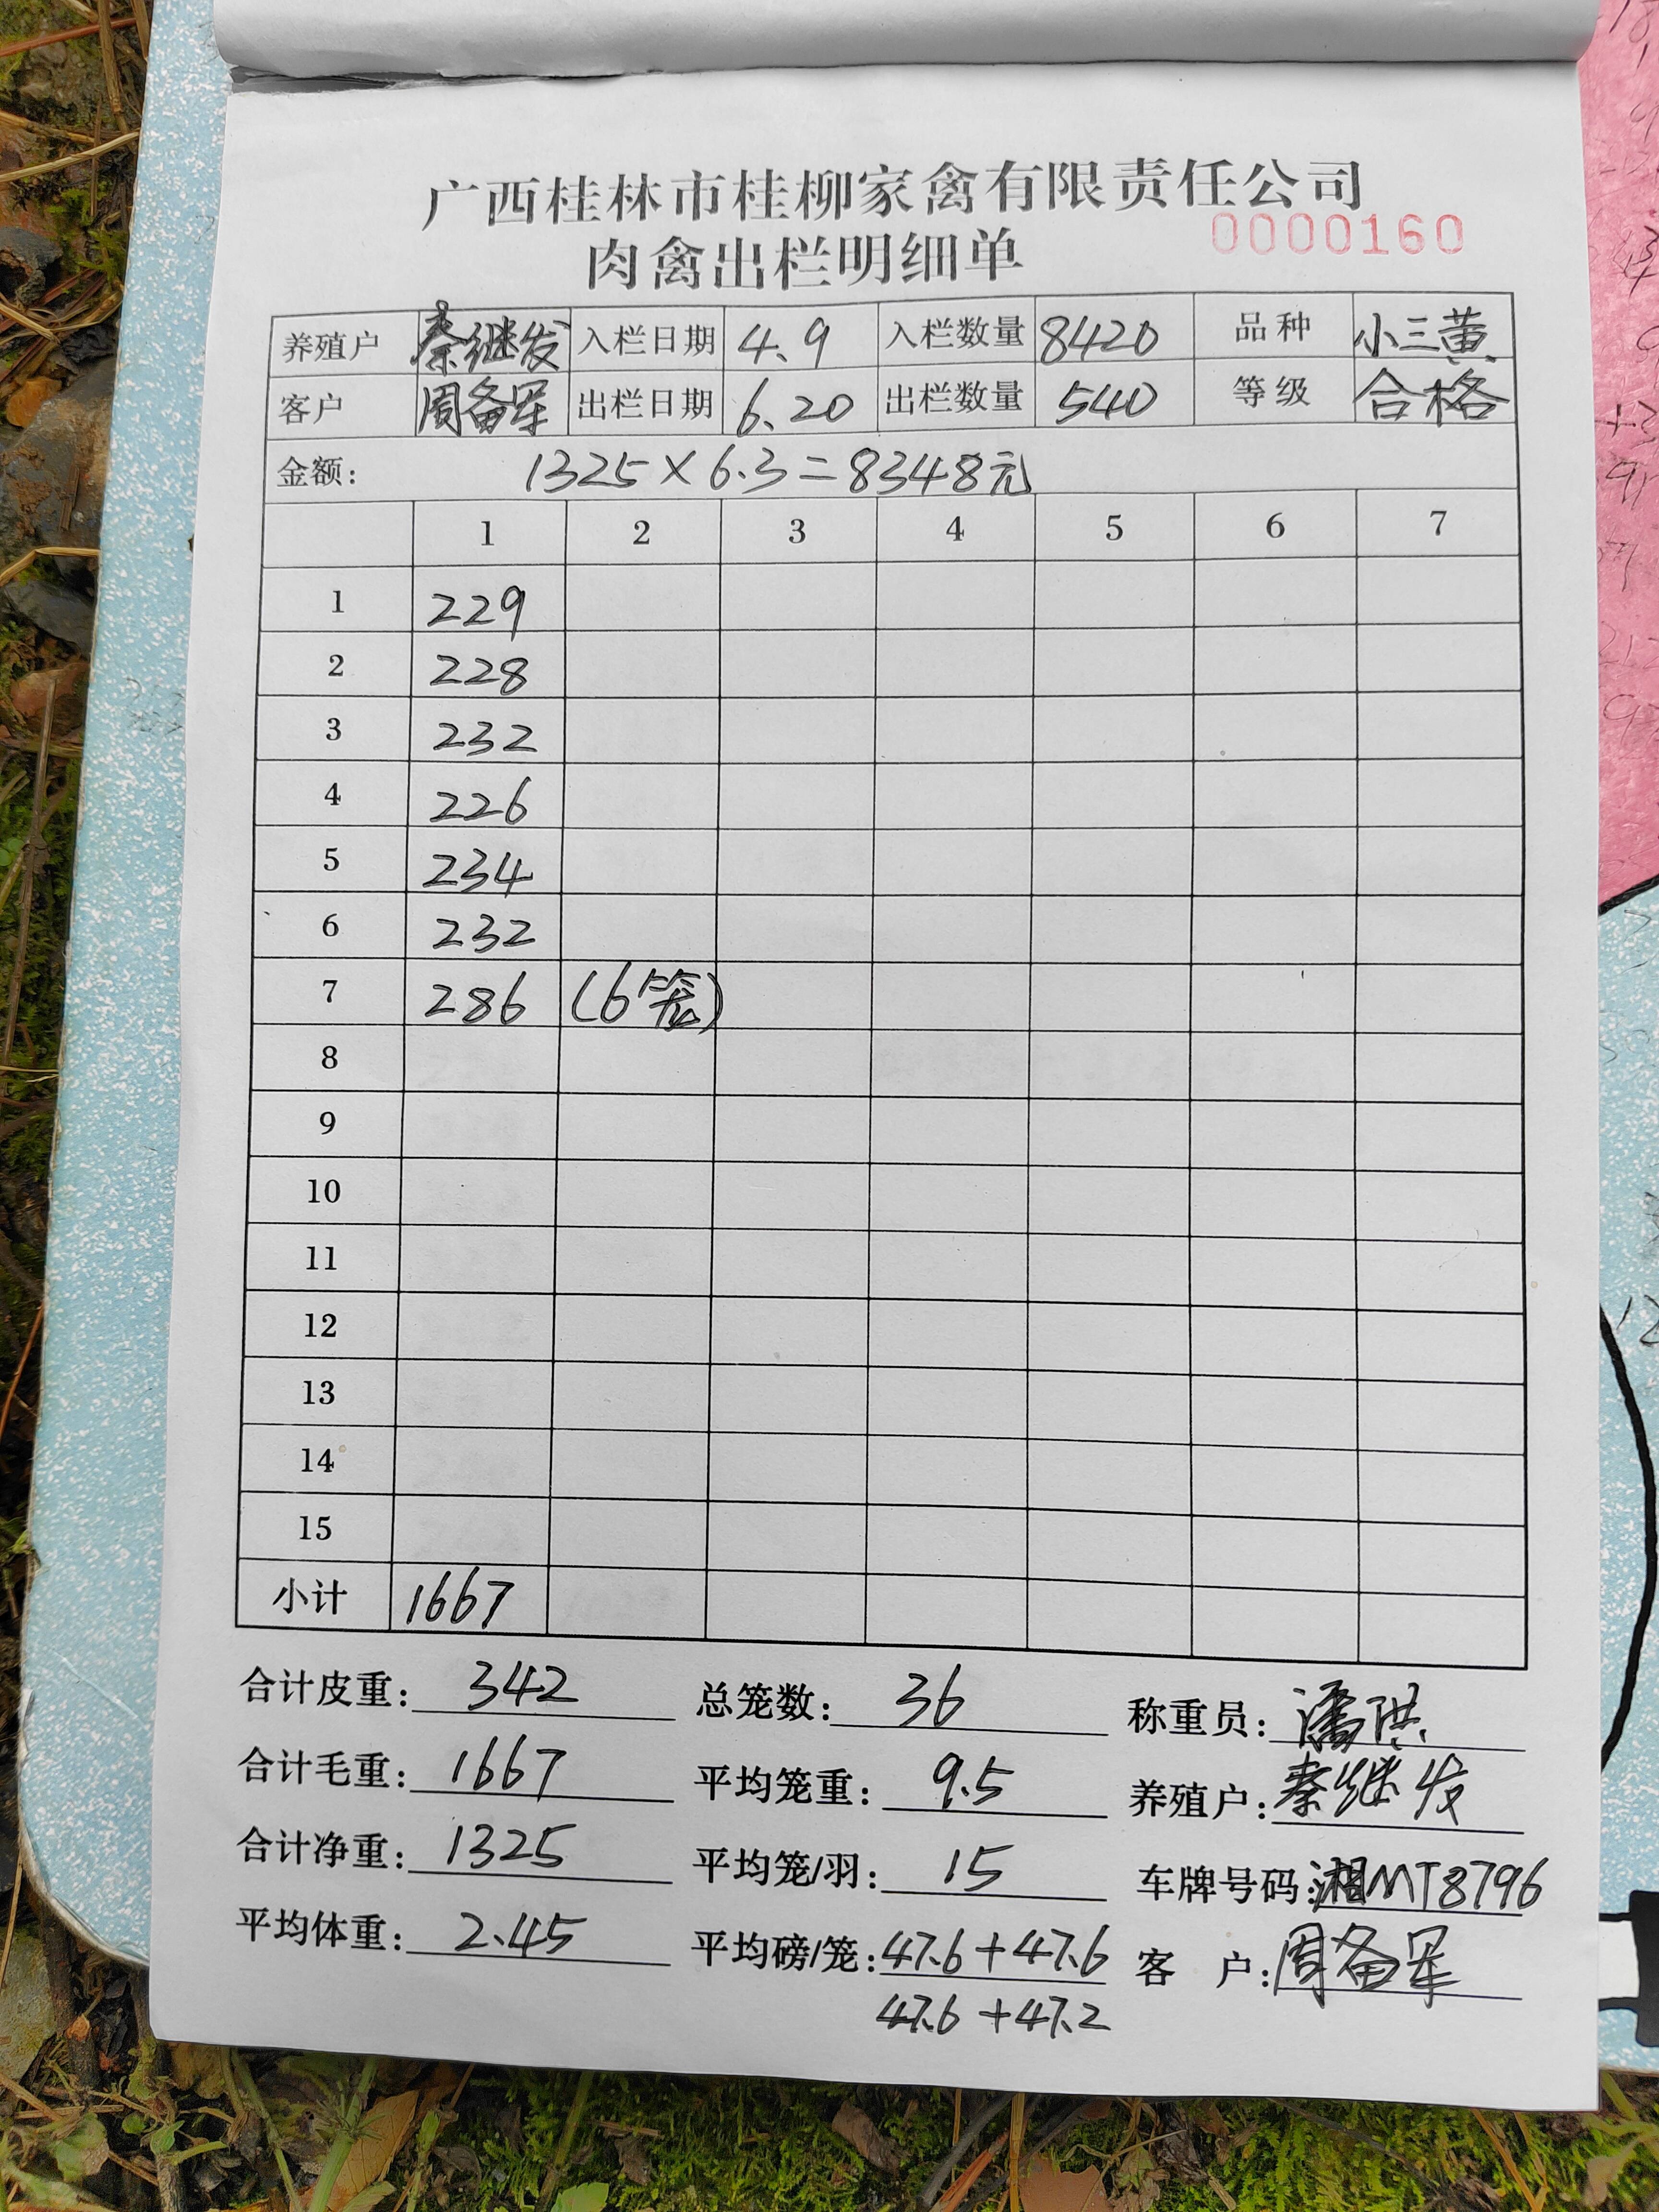 广西桂林市桂柳家禽有限责任公司
0000160
肉禽出栏明细单
养殖户 秦继发 入栏日期 4.9 入栏数量 8420 品种 小三黄
客户 周备军 出栏日期 6.20 出栏数量 540 等级 合格
金额: 1325×6.3=8348元
1 2 3 4 5 6 7
1 229
2 228
3 232
4 226
5 234
6 232
7 286 (6笼)
8
9
10
11
12
13
14
15
小计 1667
合计皮重: 342 总笼数: 36 称重员: 潘洪
合计毛重: 1667 平均笼重: 9.5 养殖户: 秦继发
合计净重: 1325 平均笼/羽: 15 车牌号码: 湘MT8796
平均体重: 2.45 平均磅/笼: 47.6+47.6 客户: 周备军
47.6+47.2